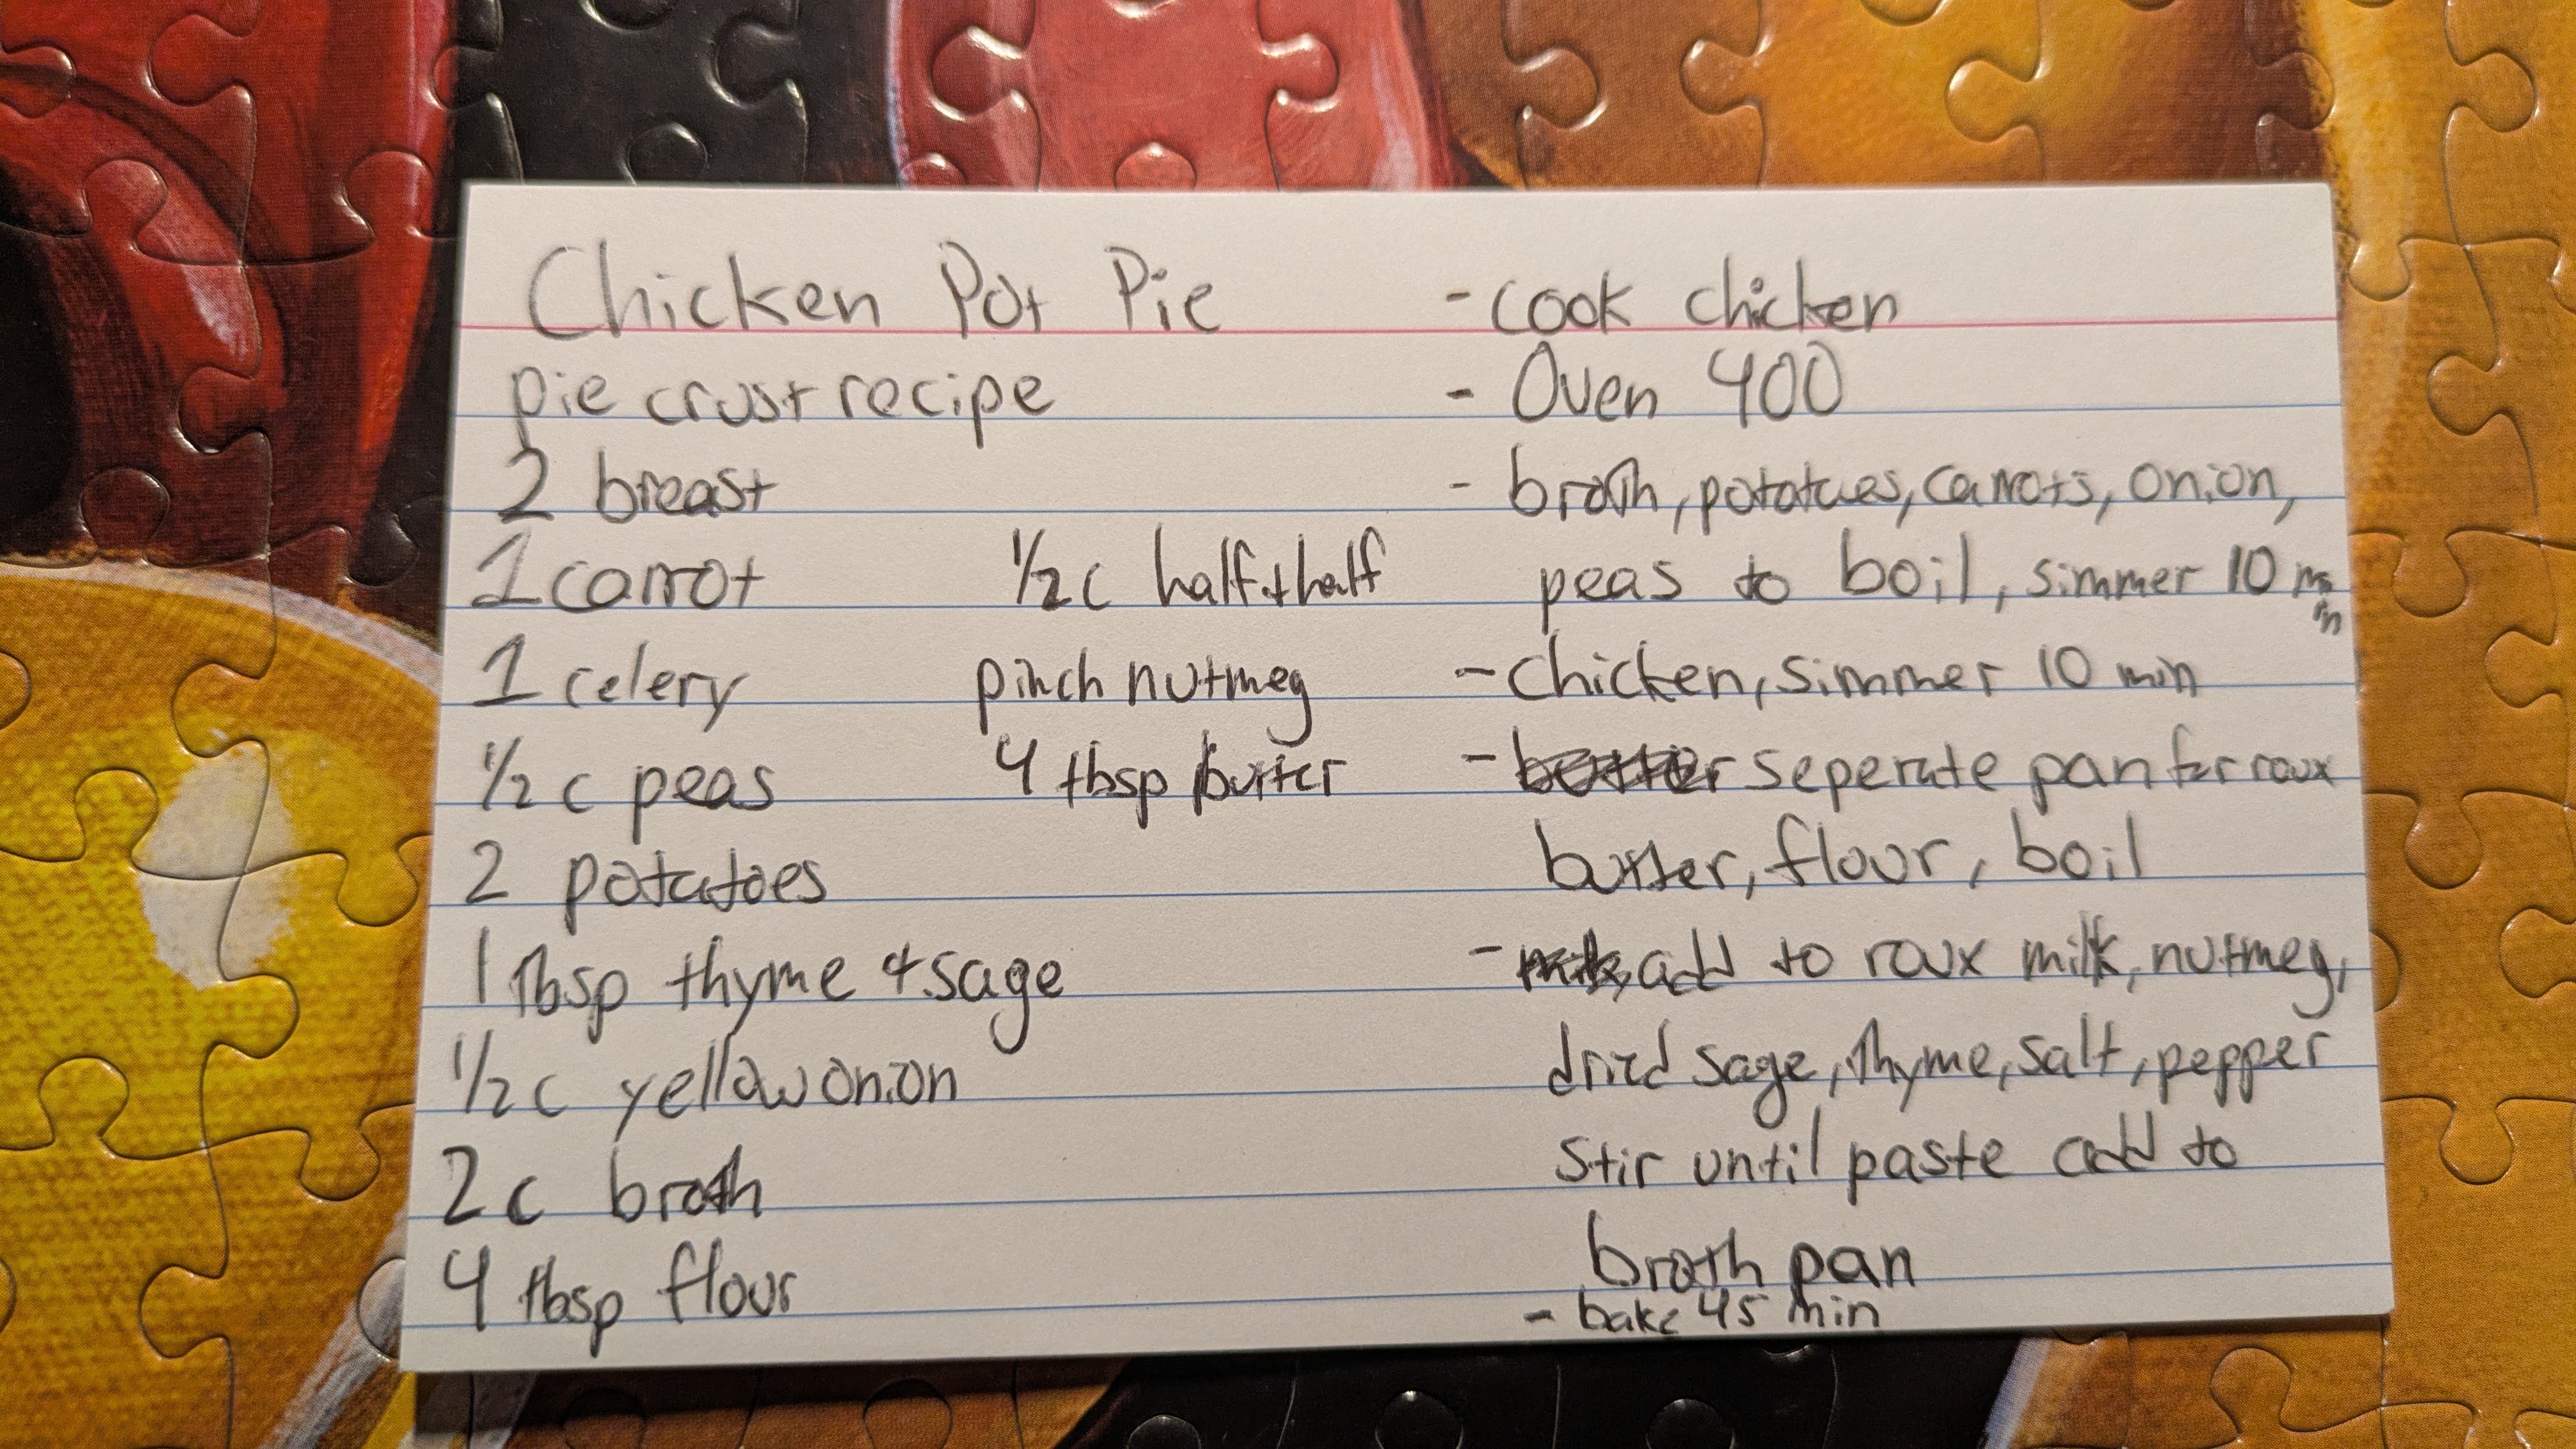 Chicken Pot Pie
pie crust recipe
2 breast
1 carrot
1 celery
1/2 c peas
2 potatoes
1 tbsp thyme + sage
1/2 c yellow onion
2c broth
4 tbsp flour
1/2 c half + half
pinch nutmeg
4 tbsp butter
- cook chicken
- Oven 400
- broth, potatoes, carrots, onion,
peas to boil, simmer 10 min
- Chicken, simmer 10 min
- seperate pan for roux
butter, flour, boil
- add to roux milk, nutmeg,
dried sage, thyme, salt, pepper
stir until paste add to
broth pan
- bake 45 min